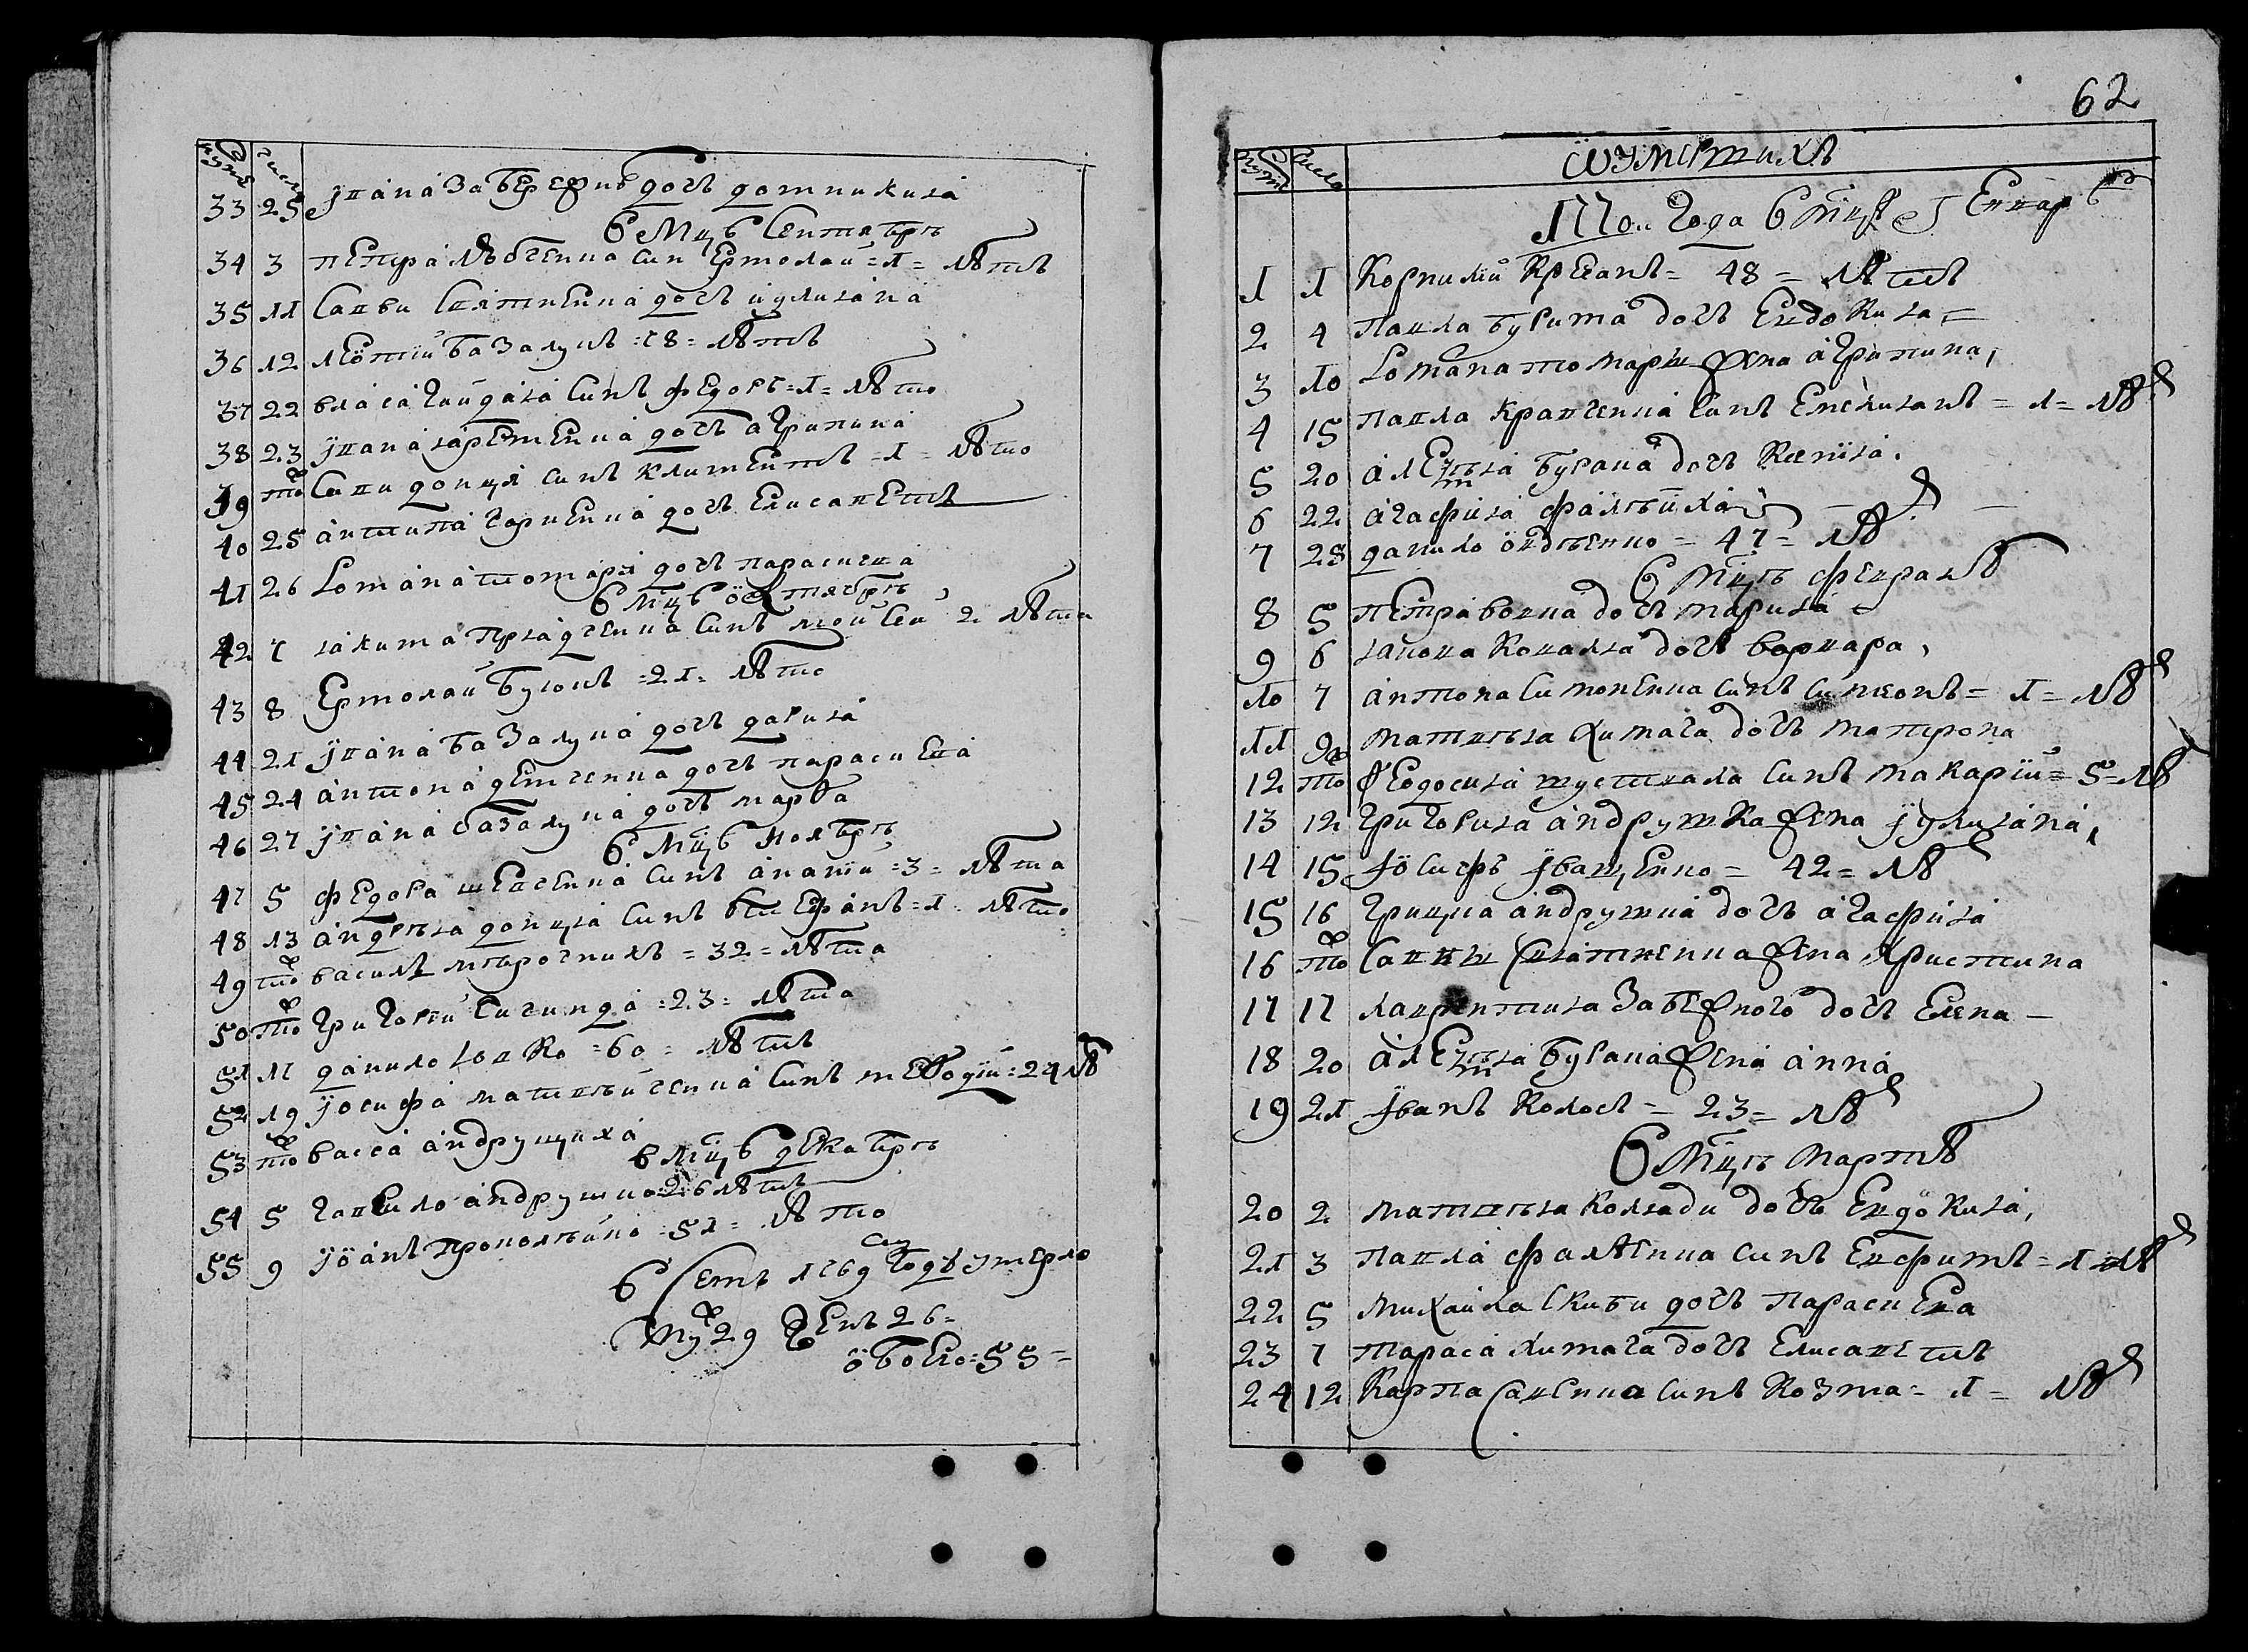 33 25 Івана Забережнъ дочъ домникия
В Мцѣ Сентябрѣ
34 3 Петра Лѣвченка син Ермолай =1= лѣтъ
35 11 Савви Святненка дочъ иулияна
36 12 леонтий базалукъ =78= лѣтъ
37 22 власа гайдая синъ федоръ =1= лѣто
38 23 Івана яременка дочъ агрипина
39 то Савви донця синъ климентъ =1= лѣто
40 25 антипа чорненка дочъ Елисаветъ
41 26 Романа томари дочъ парасковиа
В Мцѣ октябрѣ
42 7 якима прядченка синъ мойсей 2 лѣта
43 8 Ермолай бугонъ =21= лѣто
44 21 Івана базалука дочъ дария
45 24 антона демченка дочъ параскева
46 27 Івана базалука дочъ марфа
В Мцѣ ноябрѣ
47 5 федора шевченка синъ анания =3= лѣта
48 13 андрѣя донця синъ стефанъ =1= лѣто
49 то василь мирочникъ =32= лѣта
50 то григорий сагинда =23= лѣта
51 17 данило ховко =60= лѣтъ
52 19 іосифа матвѣйченка синъ мефодий =24 лѣ
53 то васса андрущиха
в мцѣ декабрѣ
54 5 гаврило андрушко =26 лѣтъ
55 9 іоанъ прокопѣйко =51= лѣто
В семъ 1769 году умерло
му 29 жен 26=
обоего =55=
62
нумеръ числа О умершихъ
1770 года В мцѣ Генварѣ
1 1 Корнилий Кресанъ = 48 = лѣтъ
2 4 Павла бурима дочъ Евдокия =
3 10 Романа томари жена агрипина,
4 15 павла кравченка синъ Емелиянъ = 1 = лѣ
5 20 алеѯѣя бурана дочъ Ксения.
6 22 агафия фалѣиха
7 28 данило овдѣенко = 47 = лѣ
В Мцѣ февралѣ
8 5 петра вовка дочъ мария
9 6 якова коваля дочъ варвара,
10 7 антона симоненка синъ симеонъ = 1 = лѣ
11 9 матвѣя химача дочъ матрона
12 то феодосия шуствала синъ макарий = 5 = лѣ
13 12 григория андрушка жена іулияна,
14 15 іосифъ іващенко = 42 = лѣ
15 16 грицка андрушка дочъ агафия
16 то Савви святненка жена христина
17 17 лаврентия забежного дочъ Елена —
18 20 алеѯѣя бурана жена анна,
19 21 іванъ колосъ = 23 = лѣ
В Мцѣ мартѣ
20 2 матвѣя коляди дочъ Евдокия,
21 3 павла фалѣенка синъ Ефримъ = 1 = лѣ
22 5 михаила скиби дочъ параскева
23 7 тараса химача дочъ Елисаветъ
24 12 карпа савенка синъ козма = 1 = лѣ